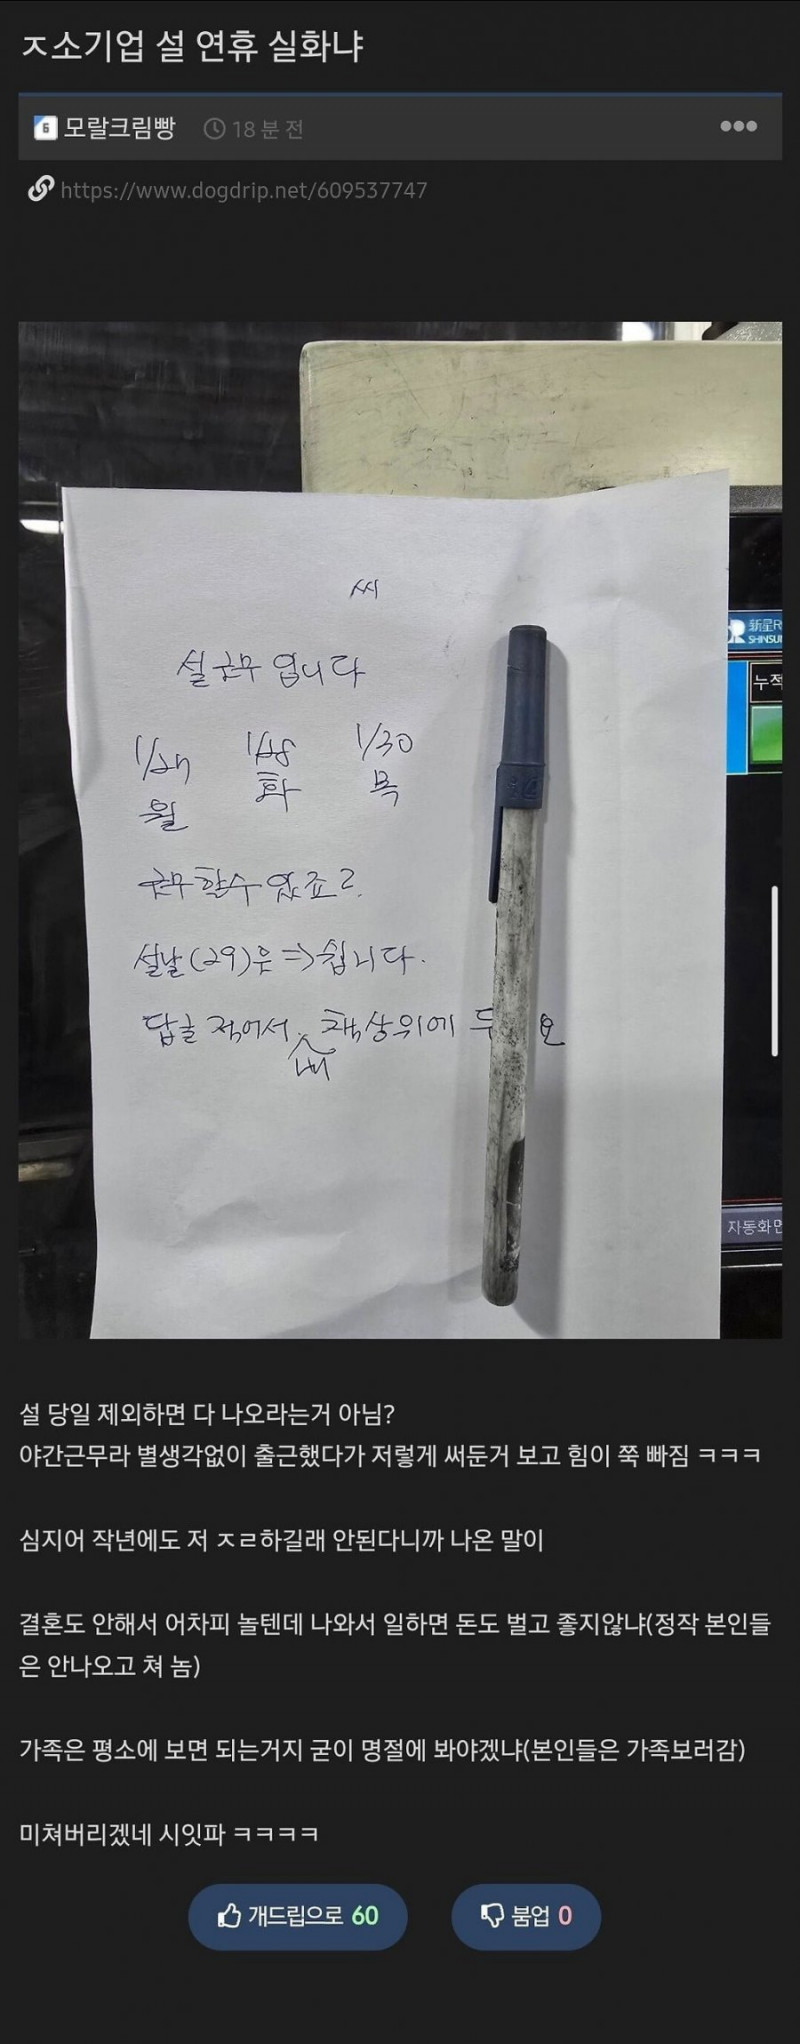 ㅈ소기업 설 연휴 실화냐
6 모랄크림빵 18 분 전
https://www.dogdrip.net/609537747
씨
설 근무 입니다
1/27 1/28 1/30
월 화 목
근무 할수 있죠?
설날(29)은 => 쉽니다.
답글 적어서 내 책상위에
요
新星
SHINSU
누적
자동화면
설 당일 제외하면 다 나오라는거 아님?
야간근무라 별생각없이 출근했다가 저렇게 써둔거 보고 힘이 쭉 빠짐 ㅋㅋㅋ
심지어 작년에도 저 ㅈㄹ하길래 안된다니까 나온 말이
결혼도 안해서 어차피 놀텐데 나와서 일하면 돈도 벌고 좋지않냐(정작 본인들
은 안나오고 쳐 놈)
가족은 평소에 보면 되는거지 굳이 명절에 봐야겠냐(본인들은 가족보러감)
미쳐버리겠네 시잇파 ㅋㅋㅋㅋ
개드립으로 60 붐업 0